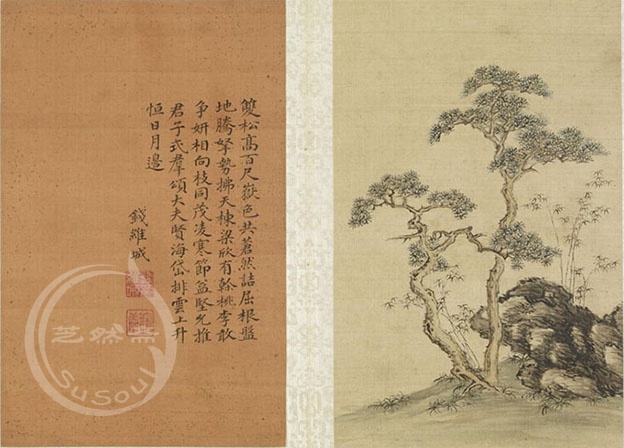 雙松高百尺嶽色共蒼然詰屈根盤
地騰拏勢拂天棟梁欣有幹桃李敢
争妍相向枝同茂凌寒節益堅允推
君子式羣頌大夫賢海岱排雲上升
恒日月邊
錢維城
芝然斋
SuSoul